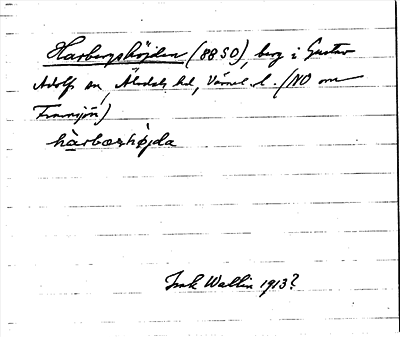 Harbergshöjden (88 SO), berg i Gustav
Adolfs sn, Älvdals hd, Värml. l. (NO om
Framsjön)
hàrbærshøjda
Ink Wallin 1913?